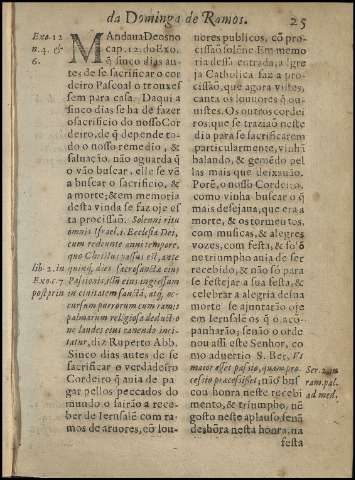 da Dominga de Ramos. 25
Exo. 12
n. 4. &
6.
MAndaua Deos no
cap. 12. do Exo.
q̃ sinco dias an
tes de se sacrificar o cor
deiro Pascoal o trouxes
sem para casa. Daqui a
sinco dias se ha dé fazer
o sacrificio do nosso Cor
deiro, de q̃ depende to-
do o nosso remedio, &
saluação, não aguarda q̃
o vão buscar, elle se vẽ
a buscar o sacrificio, &
a morte; & em memoria
desta vinda se faz oje es
ta procissaõ. Solenni ritu
omnis Israel, i. Ecclesia Dei,
cum redeunte anni tempore,
quo Christus passus est, ante
lib. 2. in
Exo. c. 7
post prin
quinq; dies sacrosanctæ eius
Passionis, illũ eius ingressum
in ciuitatem sanctã, atq; oc-
cursum puerorum cum ramis
palmarum religiosa deduċtio
ne laudes eius canendo imci-
tatur, diz Ruperto Abb.
Sinco dias antes de se
sacrificar o verdadeiro
Cordeiro q̃ auia de pa-
gar pellos peccados do
mundo o sairão a rece-
ber de Ierusalẽ com ra-
mos de aruores, cõ lou-
uores publicos, cõ pro-
cissaõ solẽne Em memo
ria dessa entrada, a Igre
ja Catholica faz a pro-
cissaõ, que agora vistes,
canta os louuores q̃ ou-
uistes. Os outros cordei
ros, que se traziaõ neste
dio para se sacrificarem
particularmente, vinhã
balando, & gemẽdo pel
las mais que deixauão.
Porẽ, o nosso Cordeiro,
como vinha buscar o q̃
mais desejaua, que era a
morte, & os tormẽtos,
com musicas, & alegres
vozes, com festa, & fo͂o
triumpho auia de ser
recebido, & não só para
se festejar a sua festa, &
celebrar a alegria de sua
morte se ajuntarão oje
em Ierusalẽ os q̃ o acõ-
panharão; senão o orde
nou assi este Senhor, co
mo aduertio S. Ber. Vt
maior esset passio, quam pro-
cessio præcessisset; não bus
Ser. 2. in
ram. pal.
ad med.
cou honra neste recebi
mento, & triumpho, nẽ
gosto neste aplauso, senã
deshõra nesta honra, na
festa